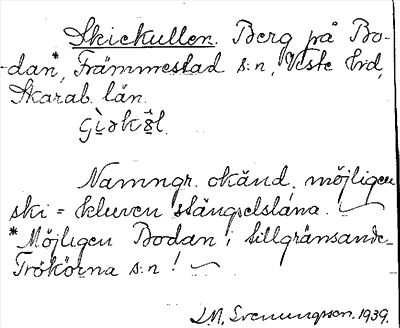 Skickullen. Berg på Bo-
dan*, Främmestad s:n, Viste hrd,
Skarab. län.

Namngr. okänd, möjligen
ski = kluven stängselslåna.
*Möjligen Bodan i tillgränsande
Trökörna s:n!
1939.